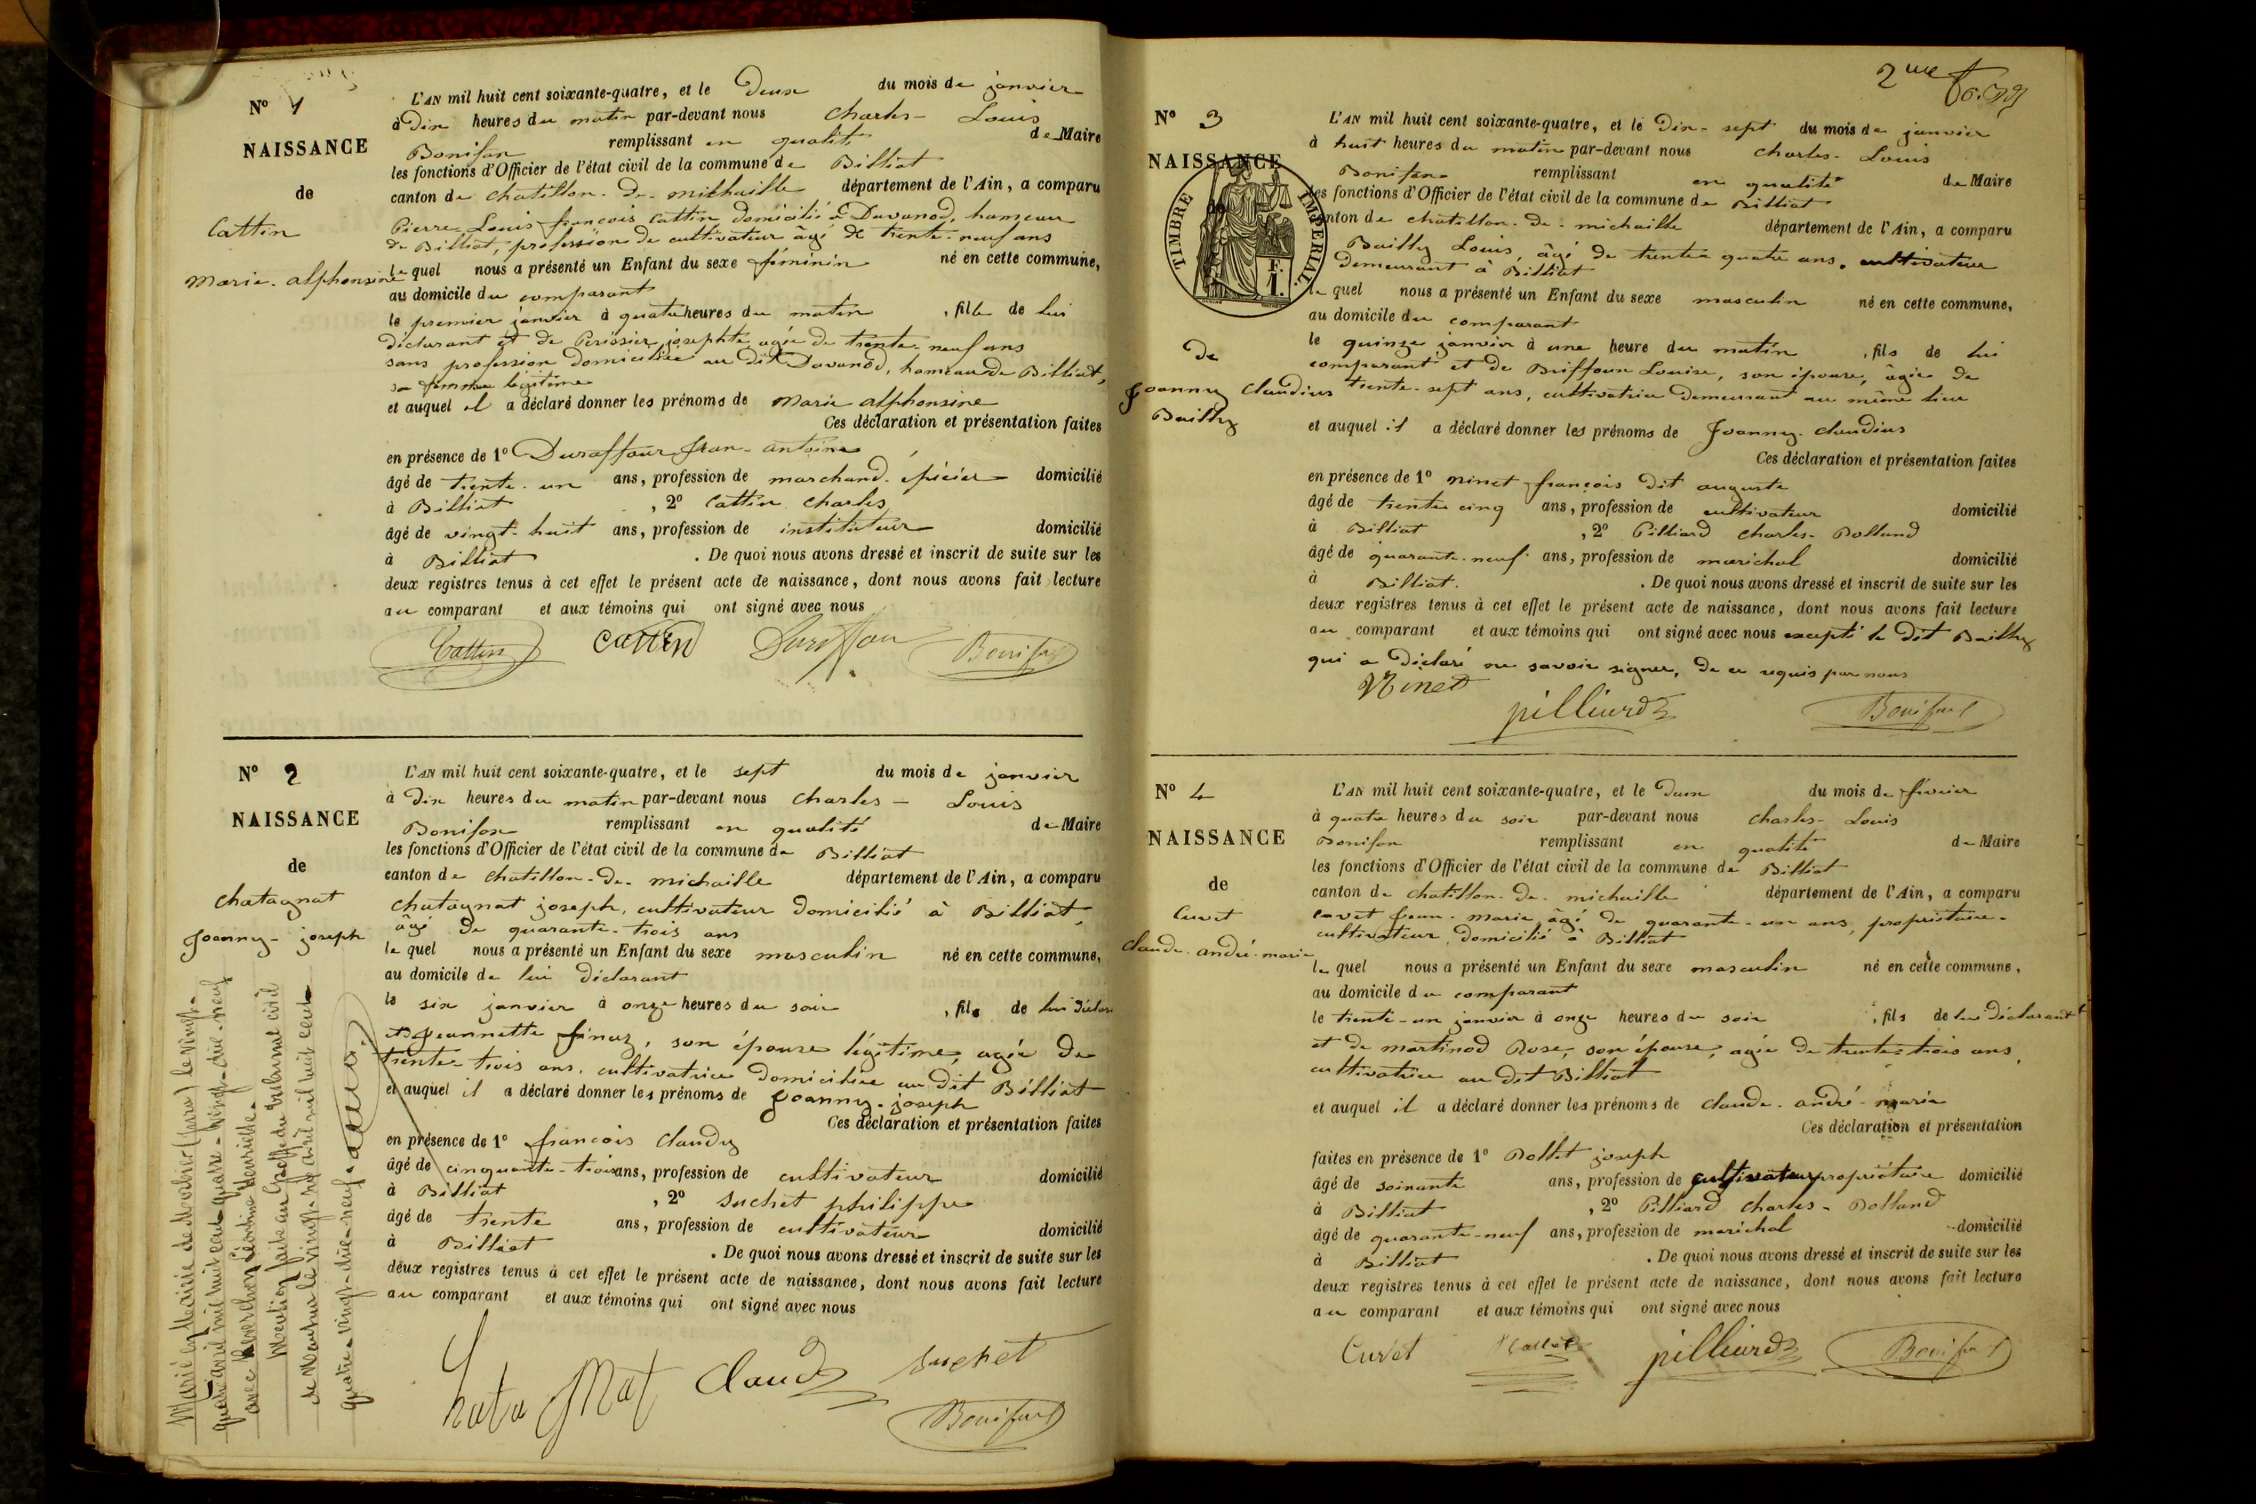 Nº 1
NAISSANCE
de
Cattin
Marie-alphonsine
L'AN mil huit cent soixante-quatre, et le Deux du mois de janvier
à Dix heures du matin par-devant nous Charles-Louis
Bonifax remplissant en qualité de Maire
les fonctions d'Officier de l'état civil de la commune de Billiat
canton de chatillon-de-michaille département de l'Ain, a comparu
Pierre Louis françois Cattin domicilié à Davanod, hameau
de Billiat, profession de cultivateur âgé de trente-neuf ans
lequel nous a présenté un Enfant du sexe féminin né en cette commune,
au domicile du comparant
le premier janvier à quatre heures du matin, fille de lui
déclarant et de josephte agée de trente-neuf ans
sans profession domiciliée au dit Davanod, hameau de Billiat,
sa femme légitime
et auquel il a déclaré donner les prénoms de Marie alphonsine
Ces déclaration et présentation faites
en présence de 1º Duraffour jean-antoine
âgé de trente-un ans, profession de marchand-épicier domicilié
à Billiat, 2º Cattin Charles
âgé de vingt-huit ans, profession de instituteur domicilié
à Billiat. De quoi nous avons dressé et inscrit de suite sur les
deux registres tenus à cet effet le présent acte de naissance, dont nous avons fait lecture
au comparant et aux témoins qui ont signé avec nous
Cattin Cattin Duraffour Bonifax
Nº 2
NAISSANCE
de
Chatagnat
Joanny-joseph
L'AN mil huit cent soixante-quatre, et le sept du mois de janvier
à Dix heures du matin par-devant nous Charles-Louis
Bonifax remplissant en qualité de Maire
les fonctions d'Officier de l'état civil de la commune de Billiat
canton de chatillon-de-michaille département de l'Ain, a comparu
Chatagnat joseph, cultivateur domicilié à Billiat,
âgé de quarante-trois ans
lequel nous a présenté un Enfant du sexe masculin né en cette commune,
au domicile de lui déclarant
le six janvier à onze heures du soir, fils de lui déclar
et Jeannette finaz, son épouse légitime, agée de
trente-trois ans, cultivatrice domiciliée au dit Billiat
et auquel il a déclaré donner les prénoms de Joanny-joseph
Ces déclaration et présentation faites
en présence de 1º françois Claudy
âgé de cinquante-trois ans, profession de cultivateur domicilié
à Billiat, 2º Suchet philippe
âgé de trente ans, profession de cultivateur domicilié
à Billiat. De quoi nous avons dressé et inscrit de suite sur les
deux registres tenus à cet effet le présent acte de naissance, dont nous avons fait lecture
au comparant et aux témoins qui ont signé avec nous
Chatagnat Claudy Suchet
Bonifax
Marié en Mairie de (Jura) le vingt-
quatre avril mil huit cent quatre-vingt-dix-neuf
avec Léontine
Mention faite au Greffe du tribunal civil
de Nantua le vingt-neuf avril mil huit cent
quatre-vingt-dix-neuf.
2me
Nº 3
NAISSANCE
TIMBRE IMPERIAL.
F.
1.
de
Joanny Claudius
Bailly
L'AN mil huit cent soixante-quatre, et le Dix-sept du mois de janvier
à huit heures du matin par-devant nous Charles-Louis
Bonifax remplissant en qualité de Maire
les fonctions d'Officier de l'état civil de la commune de Billiat
canton de chatillon-de-michaille département de l'Ain, a comparu
Bailly Louis, âgé de trente quatre ans, cultivateur
demeurant à Billiat
lequel nous a présenté un Enfant du sexe masculin né en cette commune,
au domicile du comparant
le quinze janvier à une heure du matin, fils de lui
comparant et de Briffoun Louise, son épouse, âgée de
trente-sept ans, cultivatrice demeurant au même lieu
et auquel il a déclaré donner les prénoms de Joanny-Claudius
Ces déclaration et présentation faites
en présence de 1º Ninet françois dit auguste
âgé de trente cinq ans, profession de cultivateur domicilié
à Billiat, 2º Pilliard Charles-Rolland
âgé de quarante-neuf ans, profession de maréchal domicilié
à Billiat. De quoi nous avons dressé et inscrit de suite sur les
deux registres tenus à cet effet le présent acte de naissance, dont nous avons fait lecture
au comparant et aux témoins qui ont signé avec nous excepté le dit Bailly
qui a déclaré ne savoir signer, de ce requis par nous
Ninet pilliard Bonifax
Nº 4
NAISSANCE
de
Cuvet
Claude-andré-marie
L'AN mil huit cent soixante-quatre, et le Deux du mois de février
à quatre heures du soir par-devant nous Charles-Louis
Bonifax remplissant en qualité de Maire
les fonctions d'Officier de l'état civil de la commune de Billiat
canton de chatillon-de-michaille département de l'Ain, a comparu
Cuvet jean-marie, âgé de quarante-un ans, propriétaire-
cultivateur, domicilié à Billiat
lequel nous a présenté un Enfant du sexe masculin né en cette commune,
au domicile du comparant
le trente-un janvier à onze heures du soir, fils de lui déclarant
et de martinod Rose, son épouse, agée de trente-trois ans,
cultivatrice au dit Billiat
et auquel il a déclaré donner les prénoms de Claude-andré-marie
Ces déclaration et présentation
faites en présence de 1º Rollet joseph
âgé de soixante ans, profession de cultivateur propriétaire domicilié
à Billiat, 2º Pilliard Charles-Rolland
âgé de quarante-neuf ans, profession de maréchal domicilié
à Billiat. De quoi nous avons dressé et inscrit de suite sur les
deux registres tenus à cet effet le présent acte de naissance, dont nous avons fait lecture
au comparant et aux témoins qui ont signé avec nous
Cuvet Rollet pilliard Bonifax